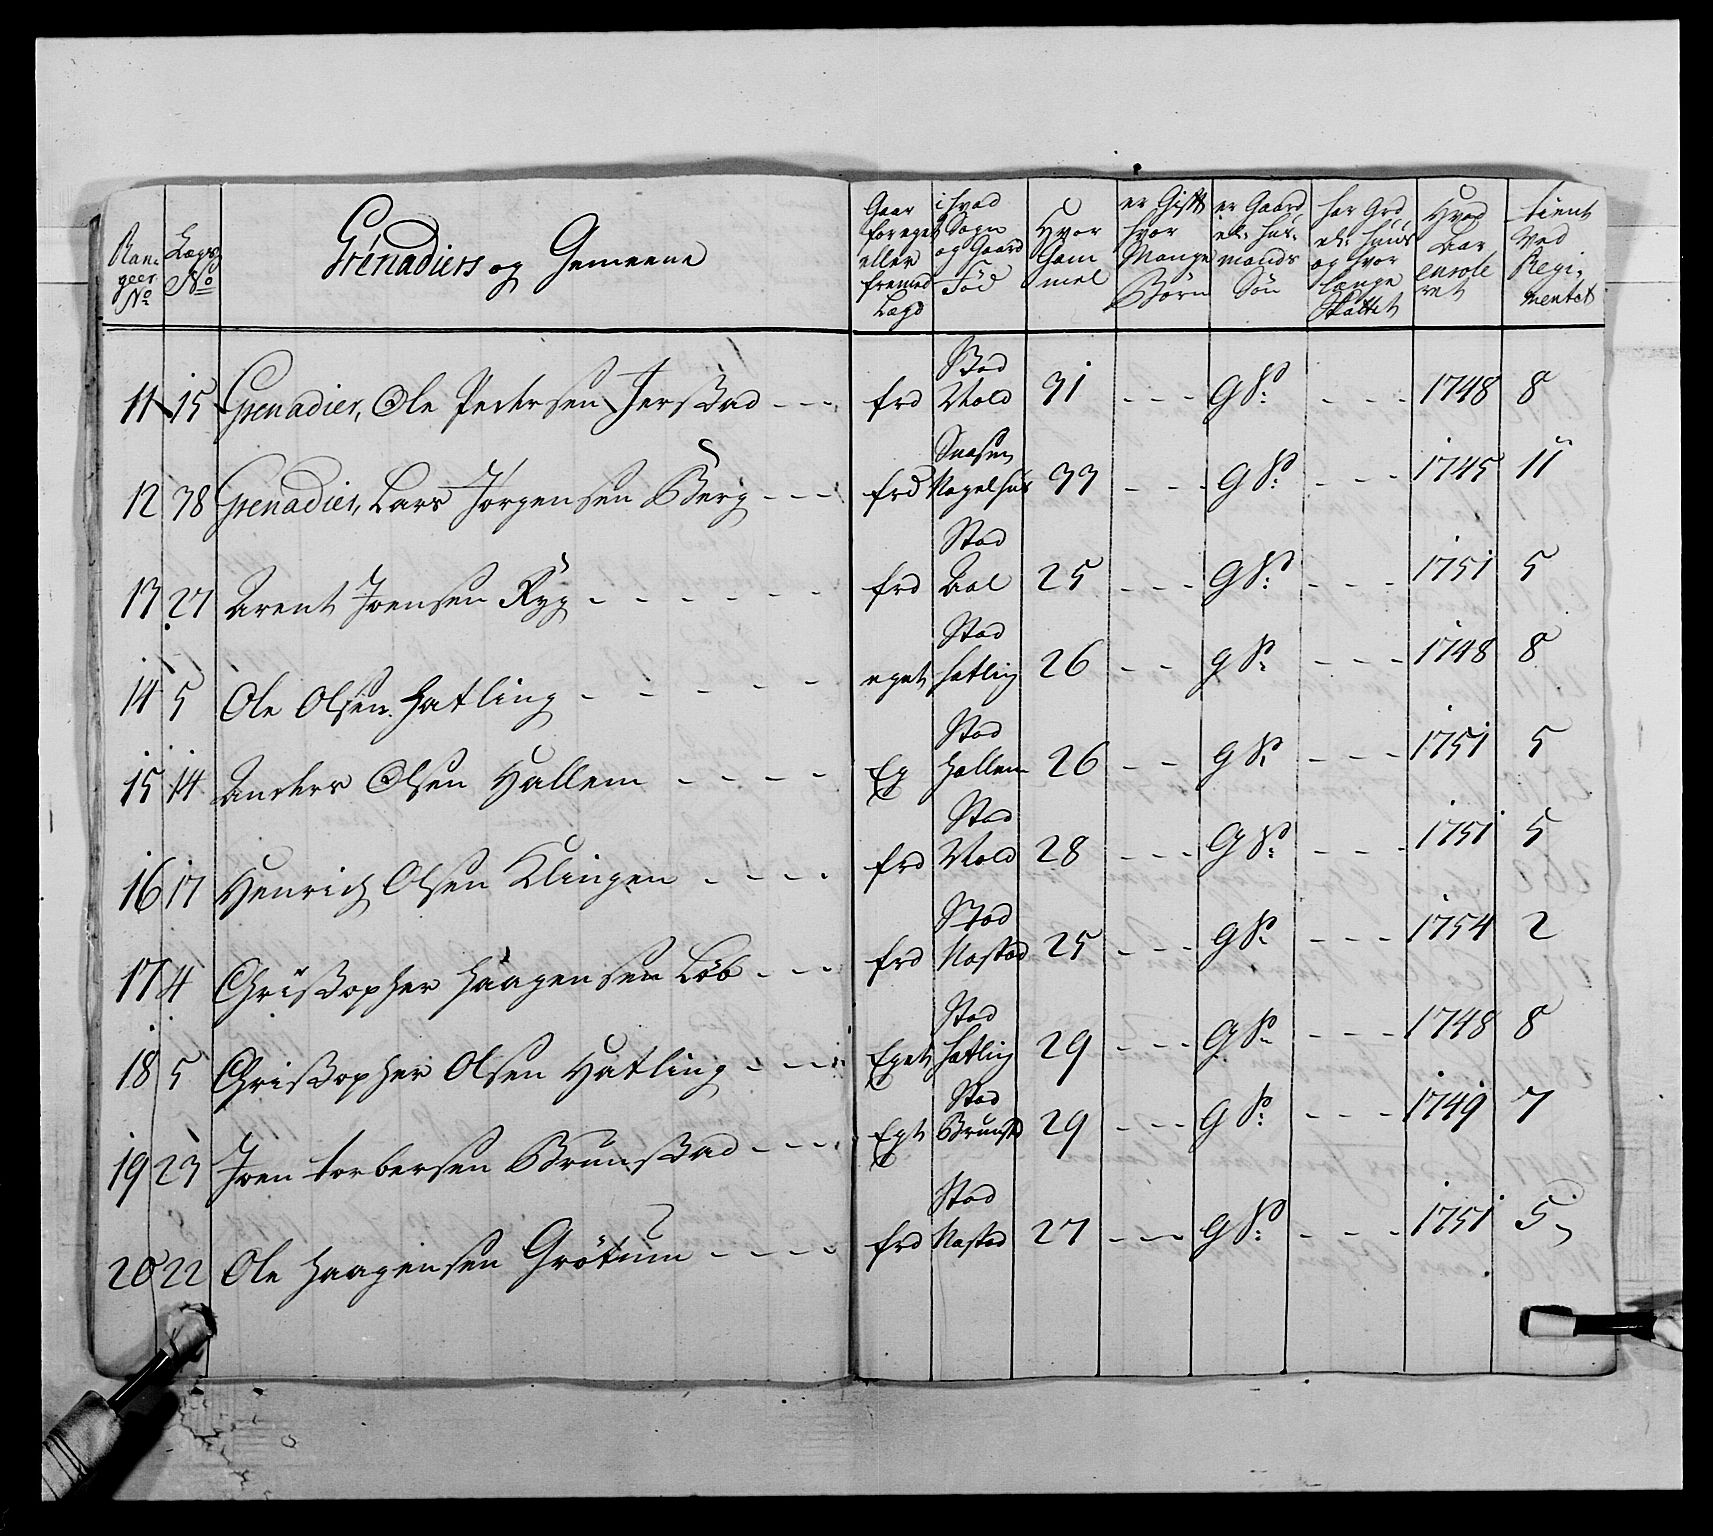 Ran-
geer
No
Lægs
No
Grenadiers og Gemeene
Gaar
for eget
eller
fremed
Lægd
i hvad
Sogn
og Gaard
Fød
Hvor
Gam
mel
er Gift
hvor
Mange
Børn
er Gaard
el: Huus-
mands
Søn
har Grd
el: Huus
og hvor
længe
Skattet
Hvad
Aar
enrole
ret
tient
Ved
Regi-
mentet
11 15 Grenadier, Ole Pedersen Jerstad - - - frd Stod Vold 31 - - - G S: - - - 1748 8
12 38 Grenadier, Lars Jørgensen Berg - - - frd Snasen Nagelhus 33 - - - G S: - - - 1745 11
13 27 Arent Joensen Ryg - - - - - - frd Stod Aal 25 - - - G S: - - - 1751 5
14 5 Ole Olsen Hatling - - - - - - eget Stod Hatling 26 - - G S: - - - 1748 8
15 14 Anders Olsen Hallem - - - - Eg Stod Hallem 26 - - G S: - - - 1751 5
16 17 Henrich Olsen Klingen - - - - frd Stod Vold 28 - - - G S: - - - 1751 5
17 4 Christopher Haagensen Løb - - - frd Stod Nastad 25 - - - G S: - - - 1754 2
18 5 Christopher Olsen Hatling - - - Eget Stod Hatling 29 - - - G S: - - - 1748 8
19 23 Joen Torbersen Brunstad - - - Egt Stod Brunstd 29 - - - G S: - - - 1749 7
20 22 Ole Haagensen Grøtum - - - - frd Stod Nastad 27 - - - G S: - - - 1751 5